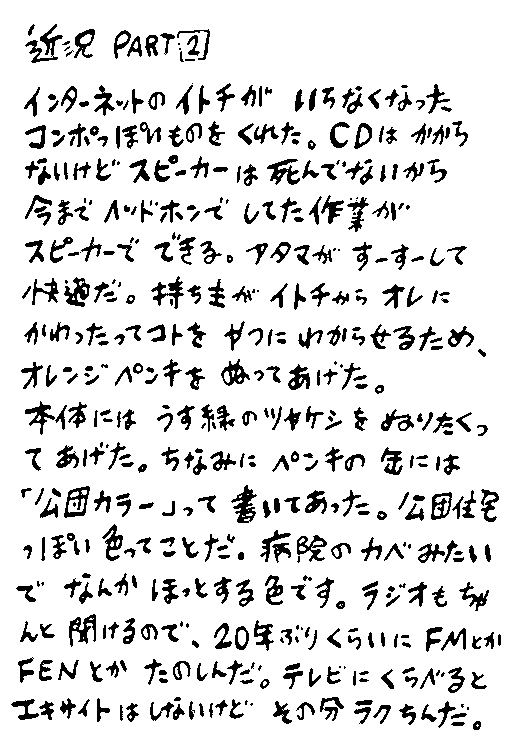 近況 PART 2
インターネットの イトチが いらなくなった
コンポっぽいものを くれた。CDは かから
ないけど スピーカーは 死んでないから
今まで ヘッドホンで してた作業が
スピーカーで できる。アタマが すーすーして
快適だ。持ち主が イトチから オレに
かわったってコトを やつに わからせるため、
オレンジペンキを ぬってあげた。
本体には うす緑のツヤケシを ぬりたくっ
てあげた。ちなみに ペンキの 缶には
「公団カラー」って 書いてあった。公団住宅
っぽい 色ってことだ。病院の カベみたい
で なんか ほっとする色です。ラジオも ちゃ
んと 聞けるので、20年ぶりくらいに FMとか
FENとか たのしんだ。テレビに くらべると
エキサイトは しないけど その分 ラクちんだ。